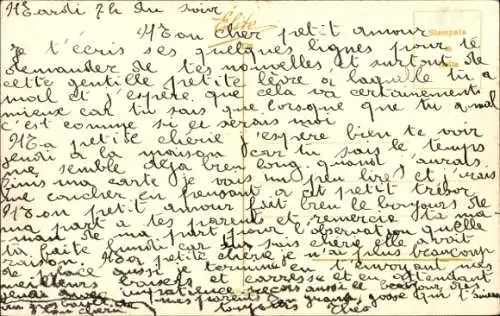 Mardi 7h du soir
Elite
Stampata
in
Italia
Mon cher petit amour
Je t'écris ses quelques lignes pour te
demander de tes nouvelles et surtout de
cette gentille petite lèvre a laquelle tu a
mal et j'espère que cela va certainement
mieux car tu sais que lorsque que tu a mal
c'est comme si je serais moi
Ma petite chérie j'espère bien te voir
jeudi a la maison car tu sais le temps
me semble déja bien long quand j'aurais
finis ma carte je vais un peu lire et j'irais
me coucher en pensant a mon petit trésor
Mon petit amour fait bien le bonjours de
ma part a tes parents et remercie ta ma-
man de ma part pour l'observation quelle
ta faite lundi car tu sais chérie elle avait
raison. Mon petite chérie je n'ai plus beaucoup
de place aussi je termine en t'envoyant mes
meilleurs baisers et caresse et en attendant
jeudi avec impatience reçois aussi le bonjour de
mes parents
toujours
ton chéri